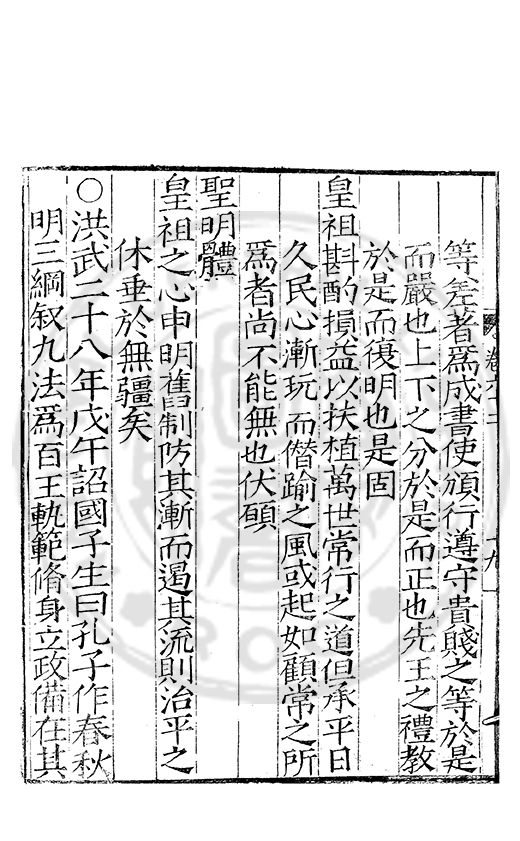 等差著爲成書使頒行遵守貴賤之等於是
而嚴也上下之分於是而正也先王之禮教
於是而復明也是固
皇祖斟酌損益以扶植萬世常行之道但承平日
久民心漸玩而僭踰之風或起如顧常之所
爲者尚不能無也伏願
聖明體
皇祖之心申明舊制防其漸而遏其流則治平之
休垂於無疆矣
○洪武二十八年戊午詔國子生曰孔子作春秋
明三綱叙九法爲百王軌範脩身立政備在其